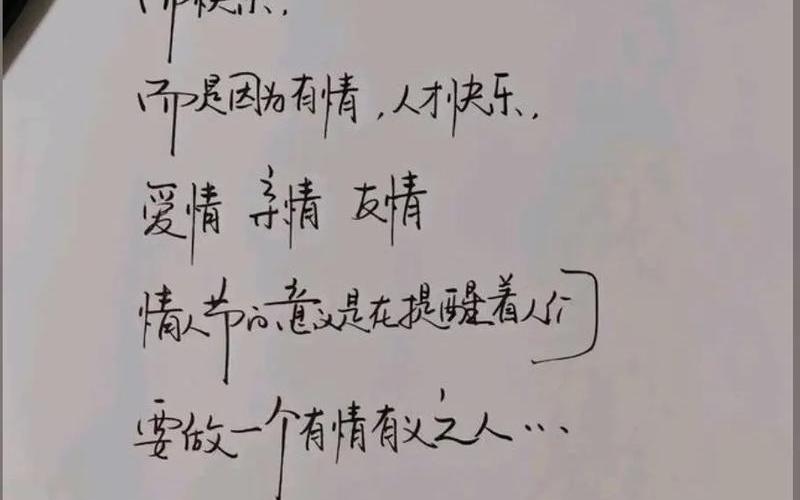 而快乐，
而是因为有情，人才快乐，
爱情 亲情 友情
情人节的意义是在提醒着人们
要做一个有情有义之人…